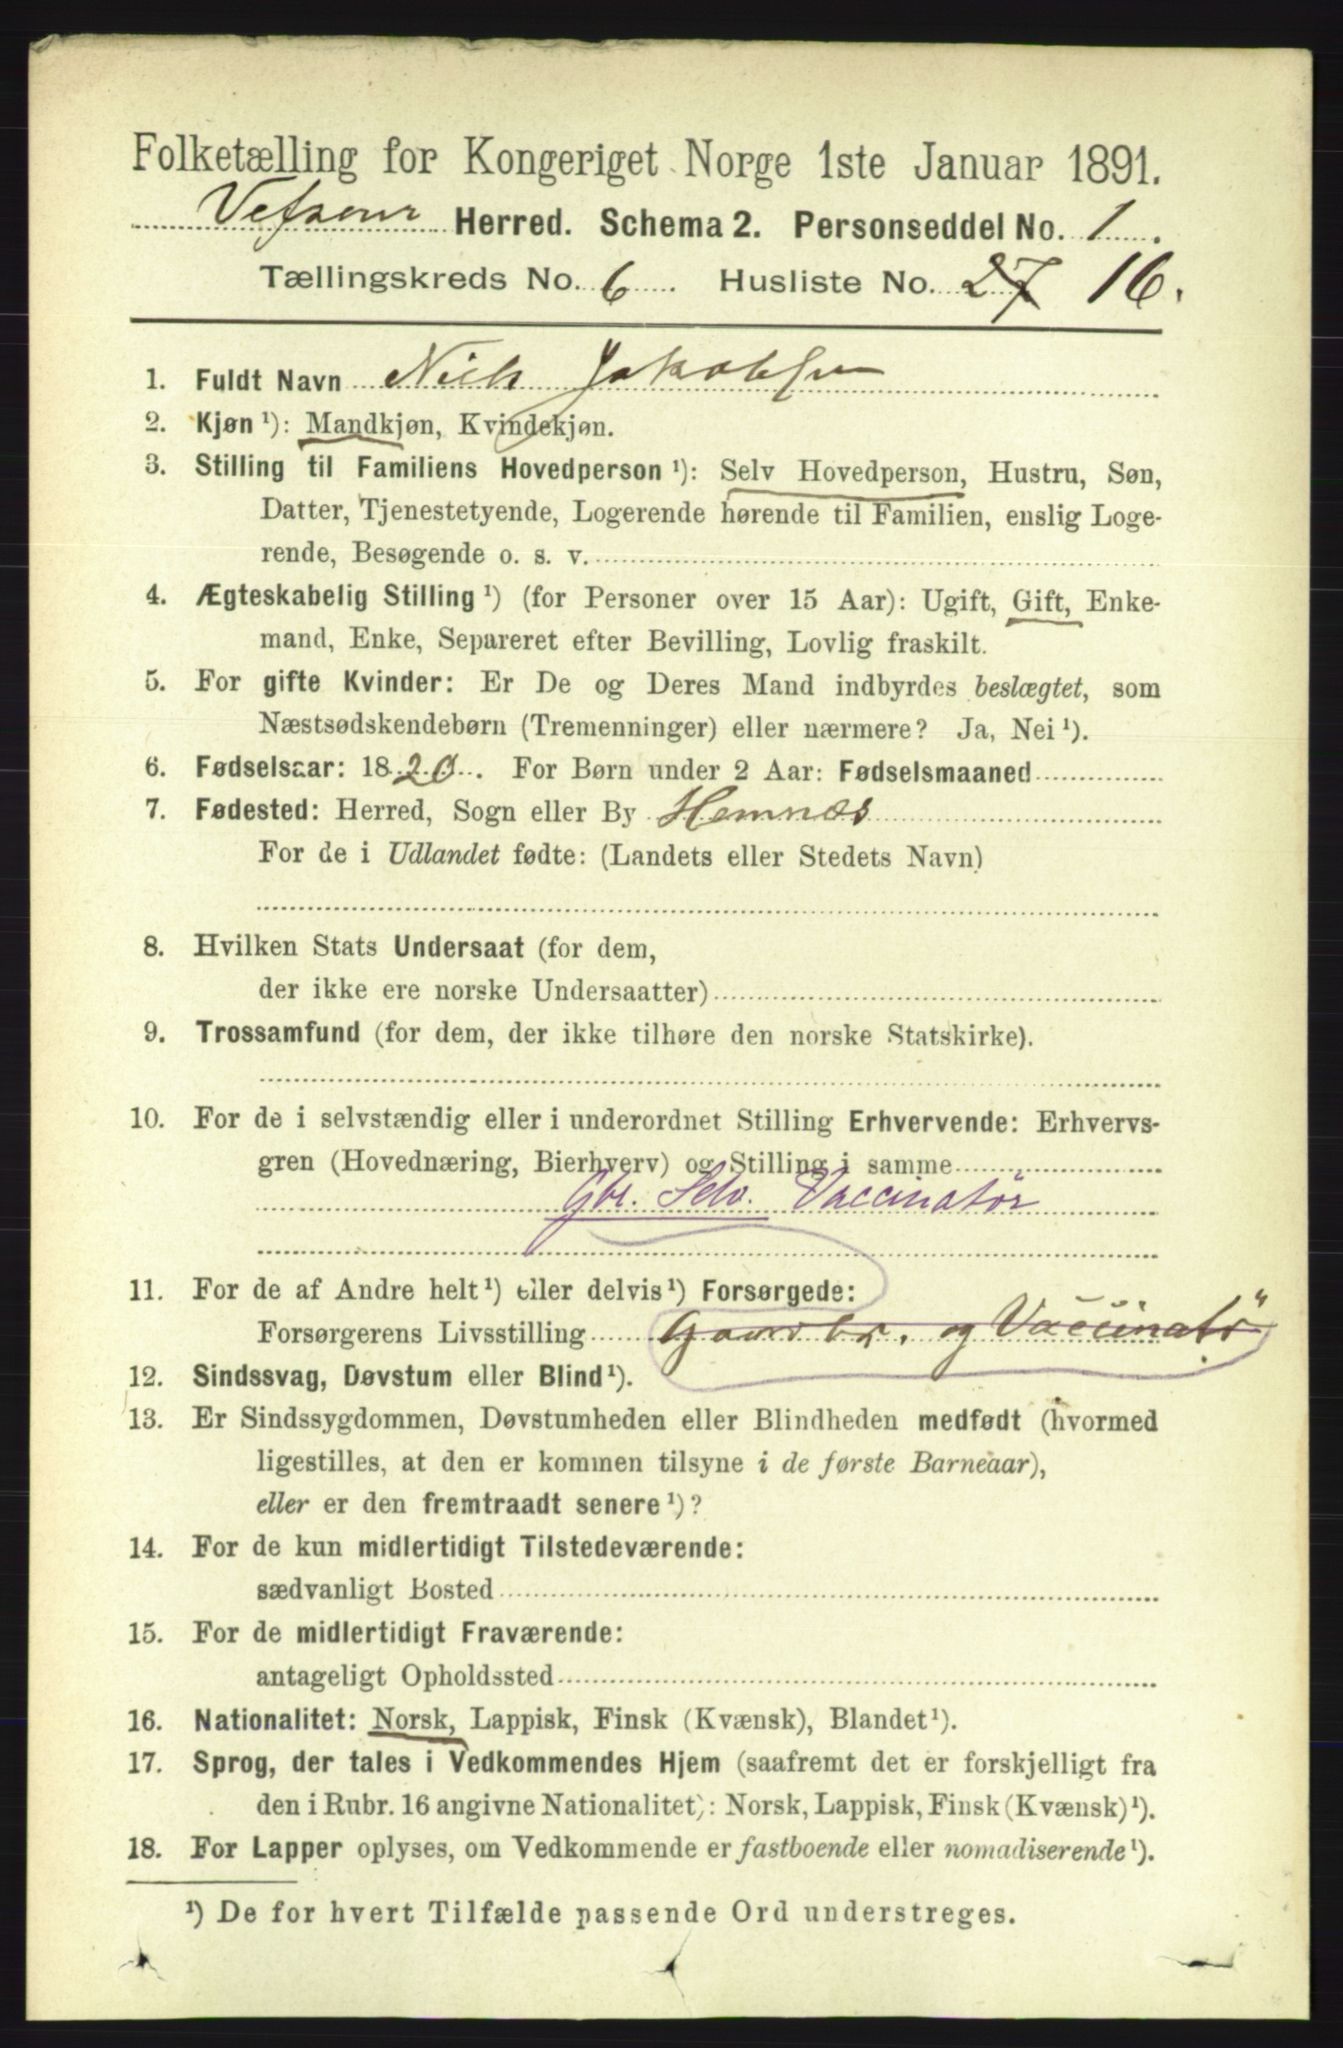 Folketælling for Kongeriget Norge 1ste Januar 1891.
Vefsen Herred. Schema 2. Personseddel No. 1.
Tællingskreds No. 6. Husliste No. 27 16.
1. Fuldt Navn Niels Jakobsen
2. Kjøn ¹): Mandkjøn, Kvindekjøn.
3. Stilling til Familiens Hovedperson ¹): Selv Hovedperson, Hustru, Søn,
Datter, Tjenestetyende, Logerende hørende til Familien, enslig Loge-
rende, Besøgende o. s. v.
4. Ægteskabelig Stilling ¹) (for Personer over 15 Aar): Ugift, Gift, Enke-
mand, Enke, Separeret efter Bevilling, Lovlig fraskilt.
5. For gifte Kvinder: Er De og Deres Mand indbyrdes beslægtet, som
Næstsødskendebørn (Tremenninger) eller nærmere? Ja, Nei ¹).
6. Fødselsaar: 1820. For Børn under 2 Aar: Fødselsmaaned
7. Fødested: Herred, Sogn eller By Hemnæs
For de i Udlandet fødte: (Landets eller Stedets Navn)
8. Hvilken Stats Undersaat (for dem,
der ikke ere norske Undersaatter)
9. Trossamfund (for dem, der ikke tilhøre den norske Statskirke).
10. For de i selvstændig eller i underordnet Stilling Erhvervende: Erhvervs-
gren (Hovednæring, Bierhverv) og Stilling i samme
Gbr. Selv. Vaccinatør
11. For de af Andre helt ¹) eller delvis ¹) Forsørgede:
Forsørgerens Livsstilling Gaardbr. og Vaccinatör
12. Sindssvag, Døvstum eller Blind ¹).
13. Er Sindssygdommen, Døvstumheden eller Blindheden medfødt (hvormed
ligestilles, at den er kommen tilsyne i de første Barneaar),
eller er den fremtraadt senere ¹)?
14. For de kun midlertidigt Tilstedeværende:
sædvanligt Bosted
15. For de midlertidigt Fraværende:
antageligt Opholdssted
16. Nationalitet: Norsk, Lappisk, Finsk (Kvænsk), Blandet ¹).
17. Sprog, der tales i Vedkommendes Hjem (saafremt det er forskjelligt fra
den i Rubr. 16 angivne Nationalitet): Norsk, Lappisk, Finsk (Kvænsk) ¹).
18. For Lapper oplyses, om Vedkommende er fastboende eller nomadiserende ¹).
¹) De for hvert Tilfælde passende Ord understreges.